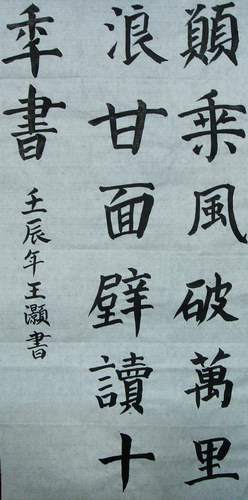 願乘風破萬里
浪甘面壁讀十
秊書
壬辰年王灝書